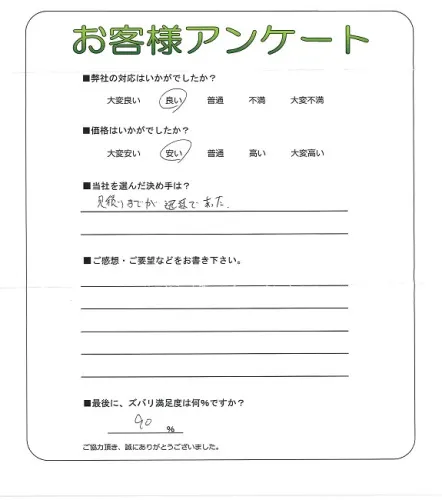 お客様アンケート
■弊社の対応はいかがでしたか？
大変良い 良い 普通 不満 大変不満
■価格はいかがでしたか？
大変安い 安い 普通 高い 大変高い
■当社を選んだ決め手は？
見積りまでが 迅速で来た.
■ご感想・ご要望などをお書き下さい。
■最後に、ズバリ満足度は何%ですか？
90 %
ご協力頂き、誠にありがとうございました。